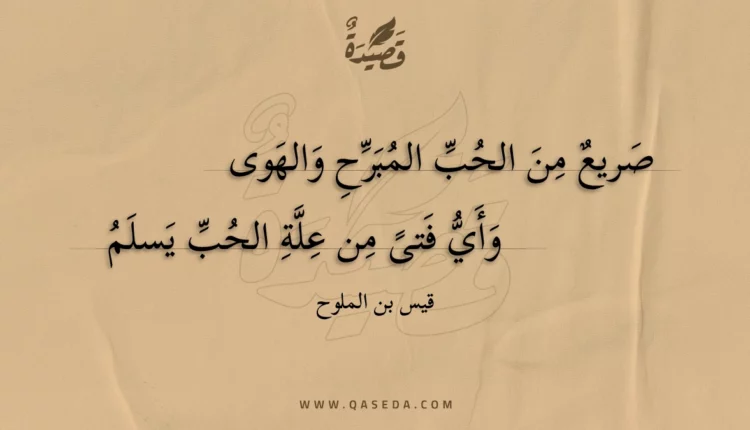 قَصِيدَةٌ
صَريعٌ مِنَ الحُبِّ المُبَرِّحِ وَالهَوى
وَأَيُّ فَتىً مِن عِلَّةِ الحُبِّ يَسلَمُ
قيس بن الملوح
WWW.QASEDA.COM